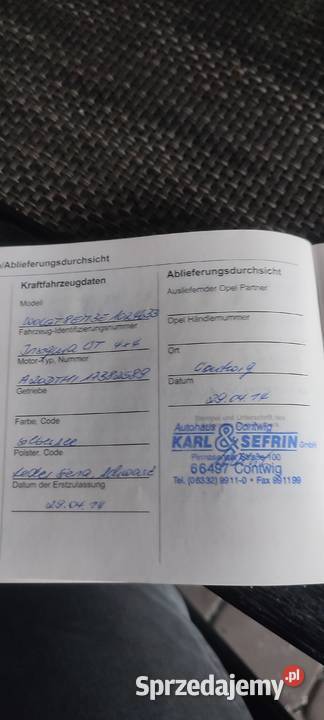 /Ablieferungsdurchsicht
Kraftfahrzeugdaten
Modell
Fahrzeug-Identifizierungsnummer
Insignia OT 4x4
Motor-Typ, Nummer
Getriebe
Farbe, Code
Polster, Code
Datum der Erstzulassung
29.04.14
Ablieferungsdurchsicht
Ausliefernder Opel Partner
Opel Händlernummer
Ort
Contwig
Datum
29.04.14
Stempel und Unterschrift des
Autohaus Contwig
KARL & SEFRIN GmbH
Pirmasenser Straße 100
66497 Contwig
Tel. (06332) 9911-0 • Fax 991199
Sprzedajemy.pl